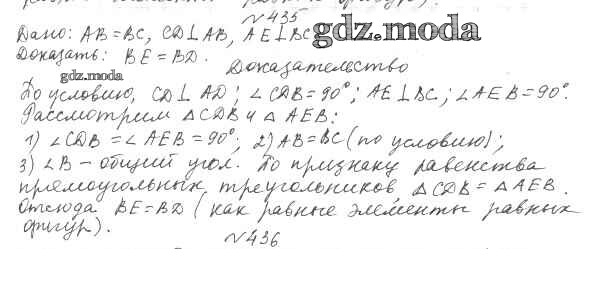 №435
Дано: AB=BC, CD⊥AB, AE⊥BC gdz.moda
Доказать: BE=BD.
gdz.moda Доказательство
По условию, CD⊥AD; ∠CDB=90°; AE⊥BC; ∠AEB=90°.
Рассмотрим △CDB и △AEB:
1) ∠CDB=∠AEB=90°; 2) AB=BC (по условию);
3) ∠B – общий угол. По признаку равенства
прямоугольных треугольников △CDB=△AEB.
Отсюда BE=BD (как равные элементы равных
фигур).
№436